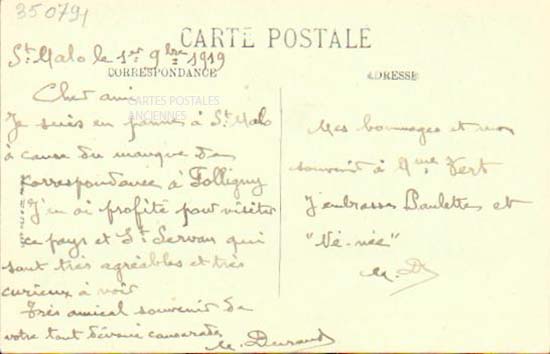 35079
St. Malo le 1er 9bre 1919
CARTE POSTALE
CORRESPONDANCE
ADRESSE
CARTES POSTALES
ANCIENNES
Cher ami
Je suis en panne à St. Malo
à cause du manque de
correspondance à Folligny
J'en ai profité pour visiter
ce pays et St. Servan qui
sont très agréables et très
curieux à voir
Très amical souvenir de
votre tout dévoué camarade
M. Durand
Mes hommages et mon
souvenir à Mme Vert
J'embrasse Paulette et
"Né-née"
M. D